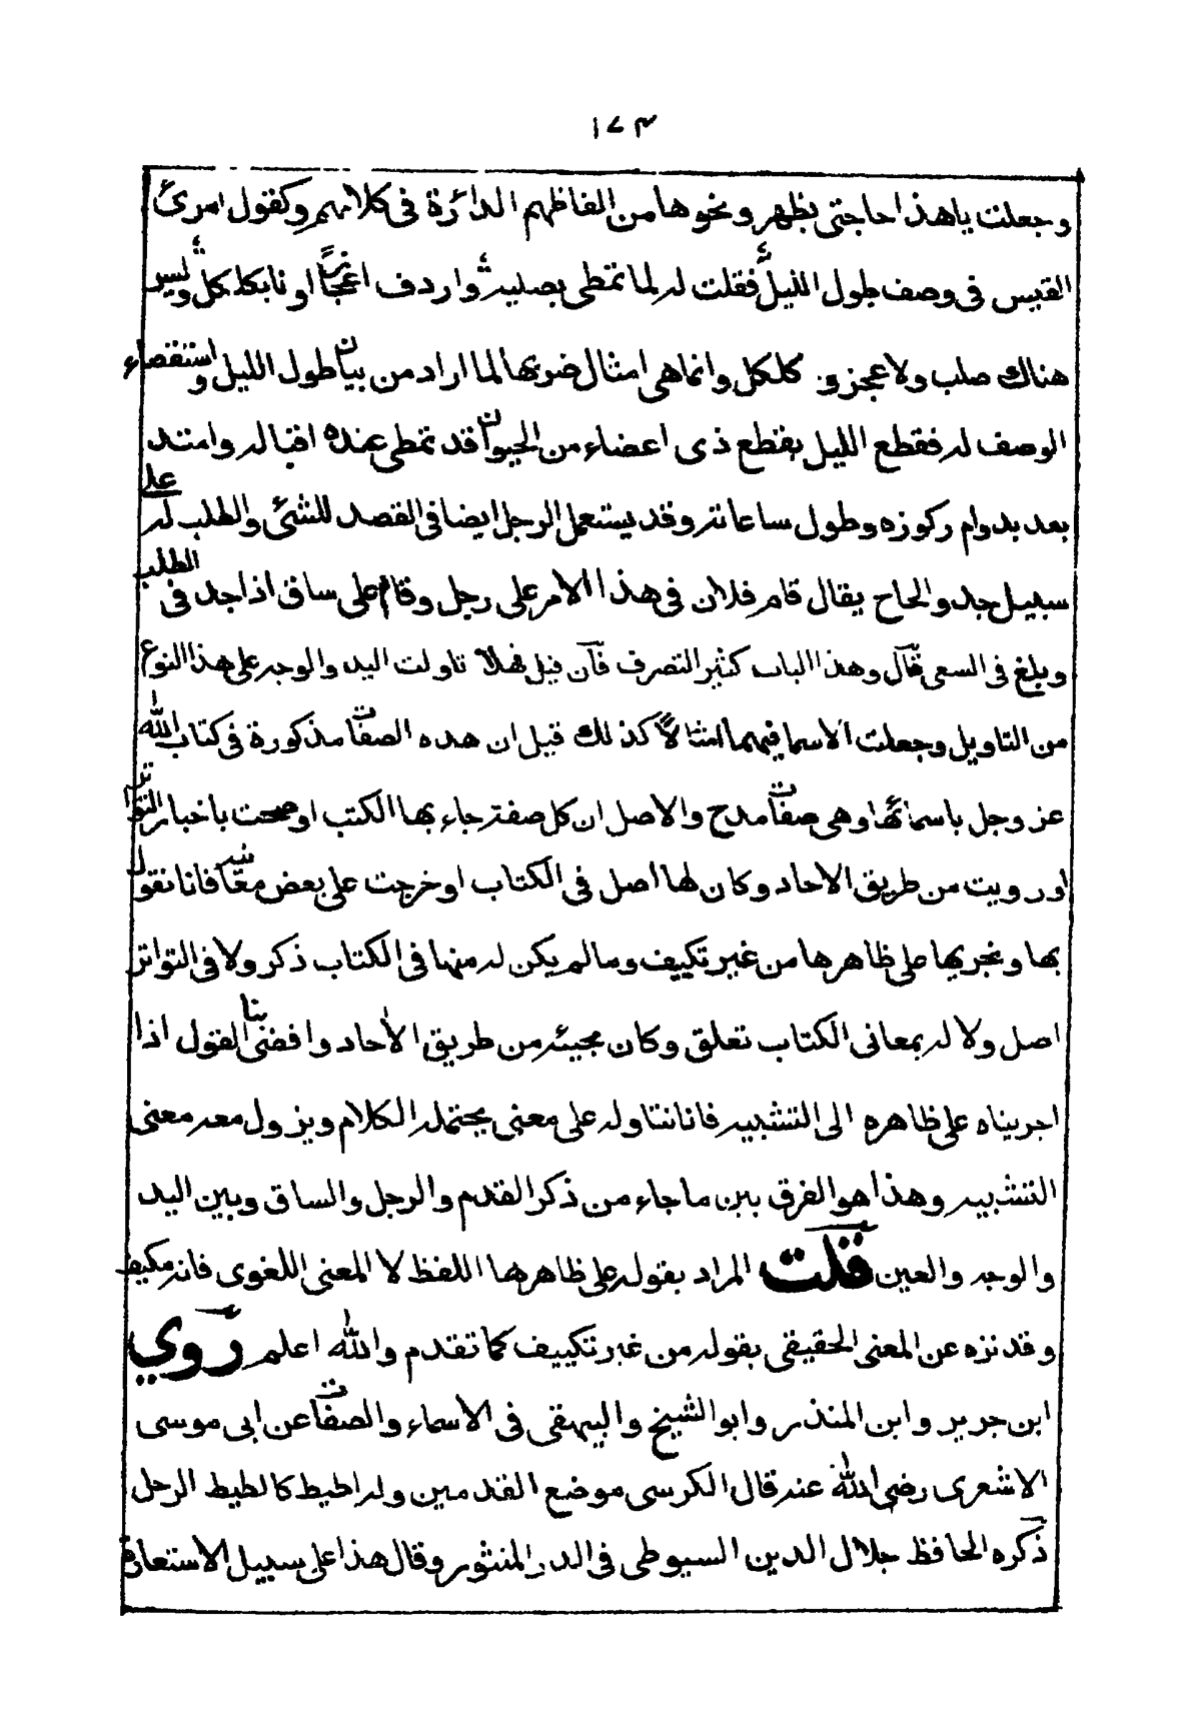 ١٧٣
وجعلت ياهذا حاجتى بظهر ونحوها من الفاظهم الدائرة فى كلامهم وكقول امرئ
القيس فى وصف طول الليل فقلت له لما تمطى بصلبه واردف اعجازا وناء بكلكل وليس
هناك صلب ولا عجز و كلكل وانما هى امثال ضربها لما اراد من بيان طول الليل واستقصاء
الوصف له فقطع الليل بقطع ذى اعضاء من الحيوان قد تمطى عنده اقباله وامتد
بعد بدوام ركوزه وطول ساعاته وقد يستعمل الرجل ايضا فى القصد للشئ والطلب له على
سبيل جد والحاح يقال قام فلان فى هذا الامر على رجل وقام على ساق اذا جد فى الطلب
وبلغ فى السعى قال وهذا الباب كثير التصرف فان قيل فهلا تاولت اليد والوجه على هذا النوع
من التاويل وجعلت الاسما فيهما امثالا كذلك قيل ان هذه الصفات مذكورة فى كتاب الله
عز وجل باسمائها وهى صفات مدح والاصل ان كل صفة جاء بها الكتب او صحت باخبار التواتر
او رويت من طريق الاحاد وكان لها اصل فى الكتاب او خرجت على بعض معانيه فانا نقول
بها ونجريها على ظاهرها من غير تكييف وما لم يكن له منها فى الكتاب ذكر ولا فى التواتر
اصل ولا له بمعانى الكتاب تعلق وكان مجيئه من طريق الاحاد وافضى بنا القول اذا
اجريناه على ظاهره الى التشبيه فانا نتاوله على معنى يحتمله الكلام ويزول معه معنى
التشبيه وهذا هو الفرق بين ما جاء من ذكر القدم والرجل والساق وبين اليد
والوجه والعين قلت المراد بقوله على ظاهرها اللفظ لا المعنى اللغوى فانه مكيف
وقد نزه عن المعنى الحقيقى بقوله من غير تكييف كما تقدم والله اعلم روي
ابن جرير وابن المنذر وابو الشيخ والبيهقى فى الاسماء والصفات عن ابى موسى
الاشعرى رضى الله عنه قال الكرسى موضع القدمين وله اطيط كاطيط الرحل
ذكره الحافظ جلال الدين السيوطى فى الدر المنثور وقال هذا على سبيل الاستعارة